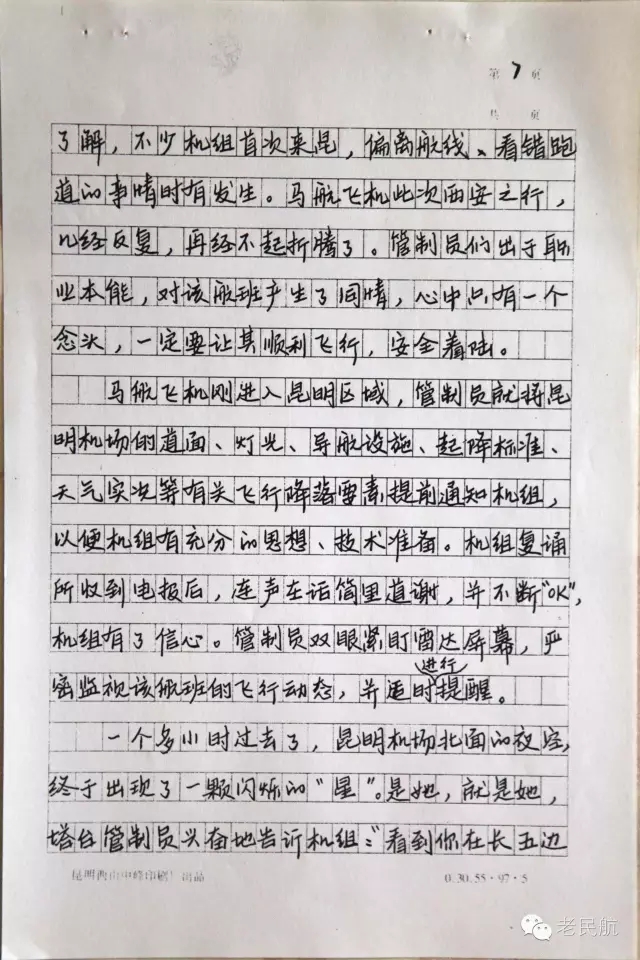 第 7 页
共 页
了解，不少机组首次来昆，偏离航线、看错跑
道的事情时有发生。马航飞机此次西安之行，
几经反复，再经不起折腾了。管制员们出于职
业本能，对该航班产生了同情，心中只有一个
念头，一定要让其顺利飞行，安全着陆。
马航飞机刚进入昆明区域，管制员就将昆
明机场的道面、灯光、导航设施、起降标准、
天气实况等有关飞行降落要素提前通知机组，
以便机组有充分的思想、技术准备。机组复诵
所收到电报后，连声在话筒里道谢，并不断“OK”，
机组有了信心。管制员双眼紧盯雷达屏幕，严
密监视该航班的飞行动态，并适时进行提醒。
一个多小时过去了，昆明机场北面的夜空，
终于出现了一颗闪烁的“星”。是她，就是她，
塔台管制员兴奋地告诉机组：“看到你在长五边
昆明西山中 印刷厂 出品
0.30.55·97·5
老民航